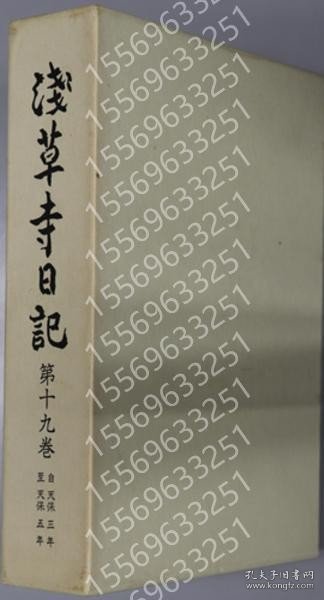 淺草寺日記
第十九巻
自天保三年
至天保五年
15569633251
15569633251
15569633251
15569633251
15569633251
15569633251
15569633251
15569633251
15569633251
15569633251
孔夫子旧书网